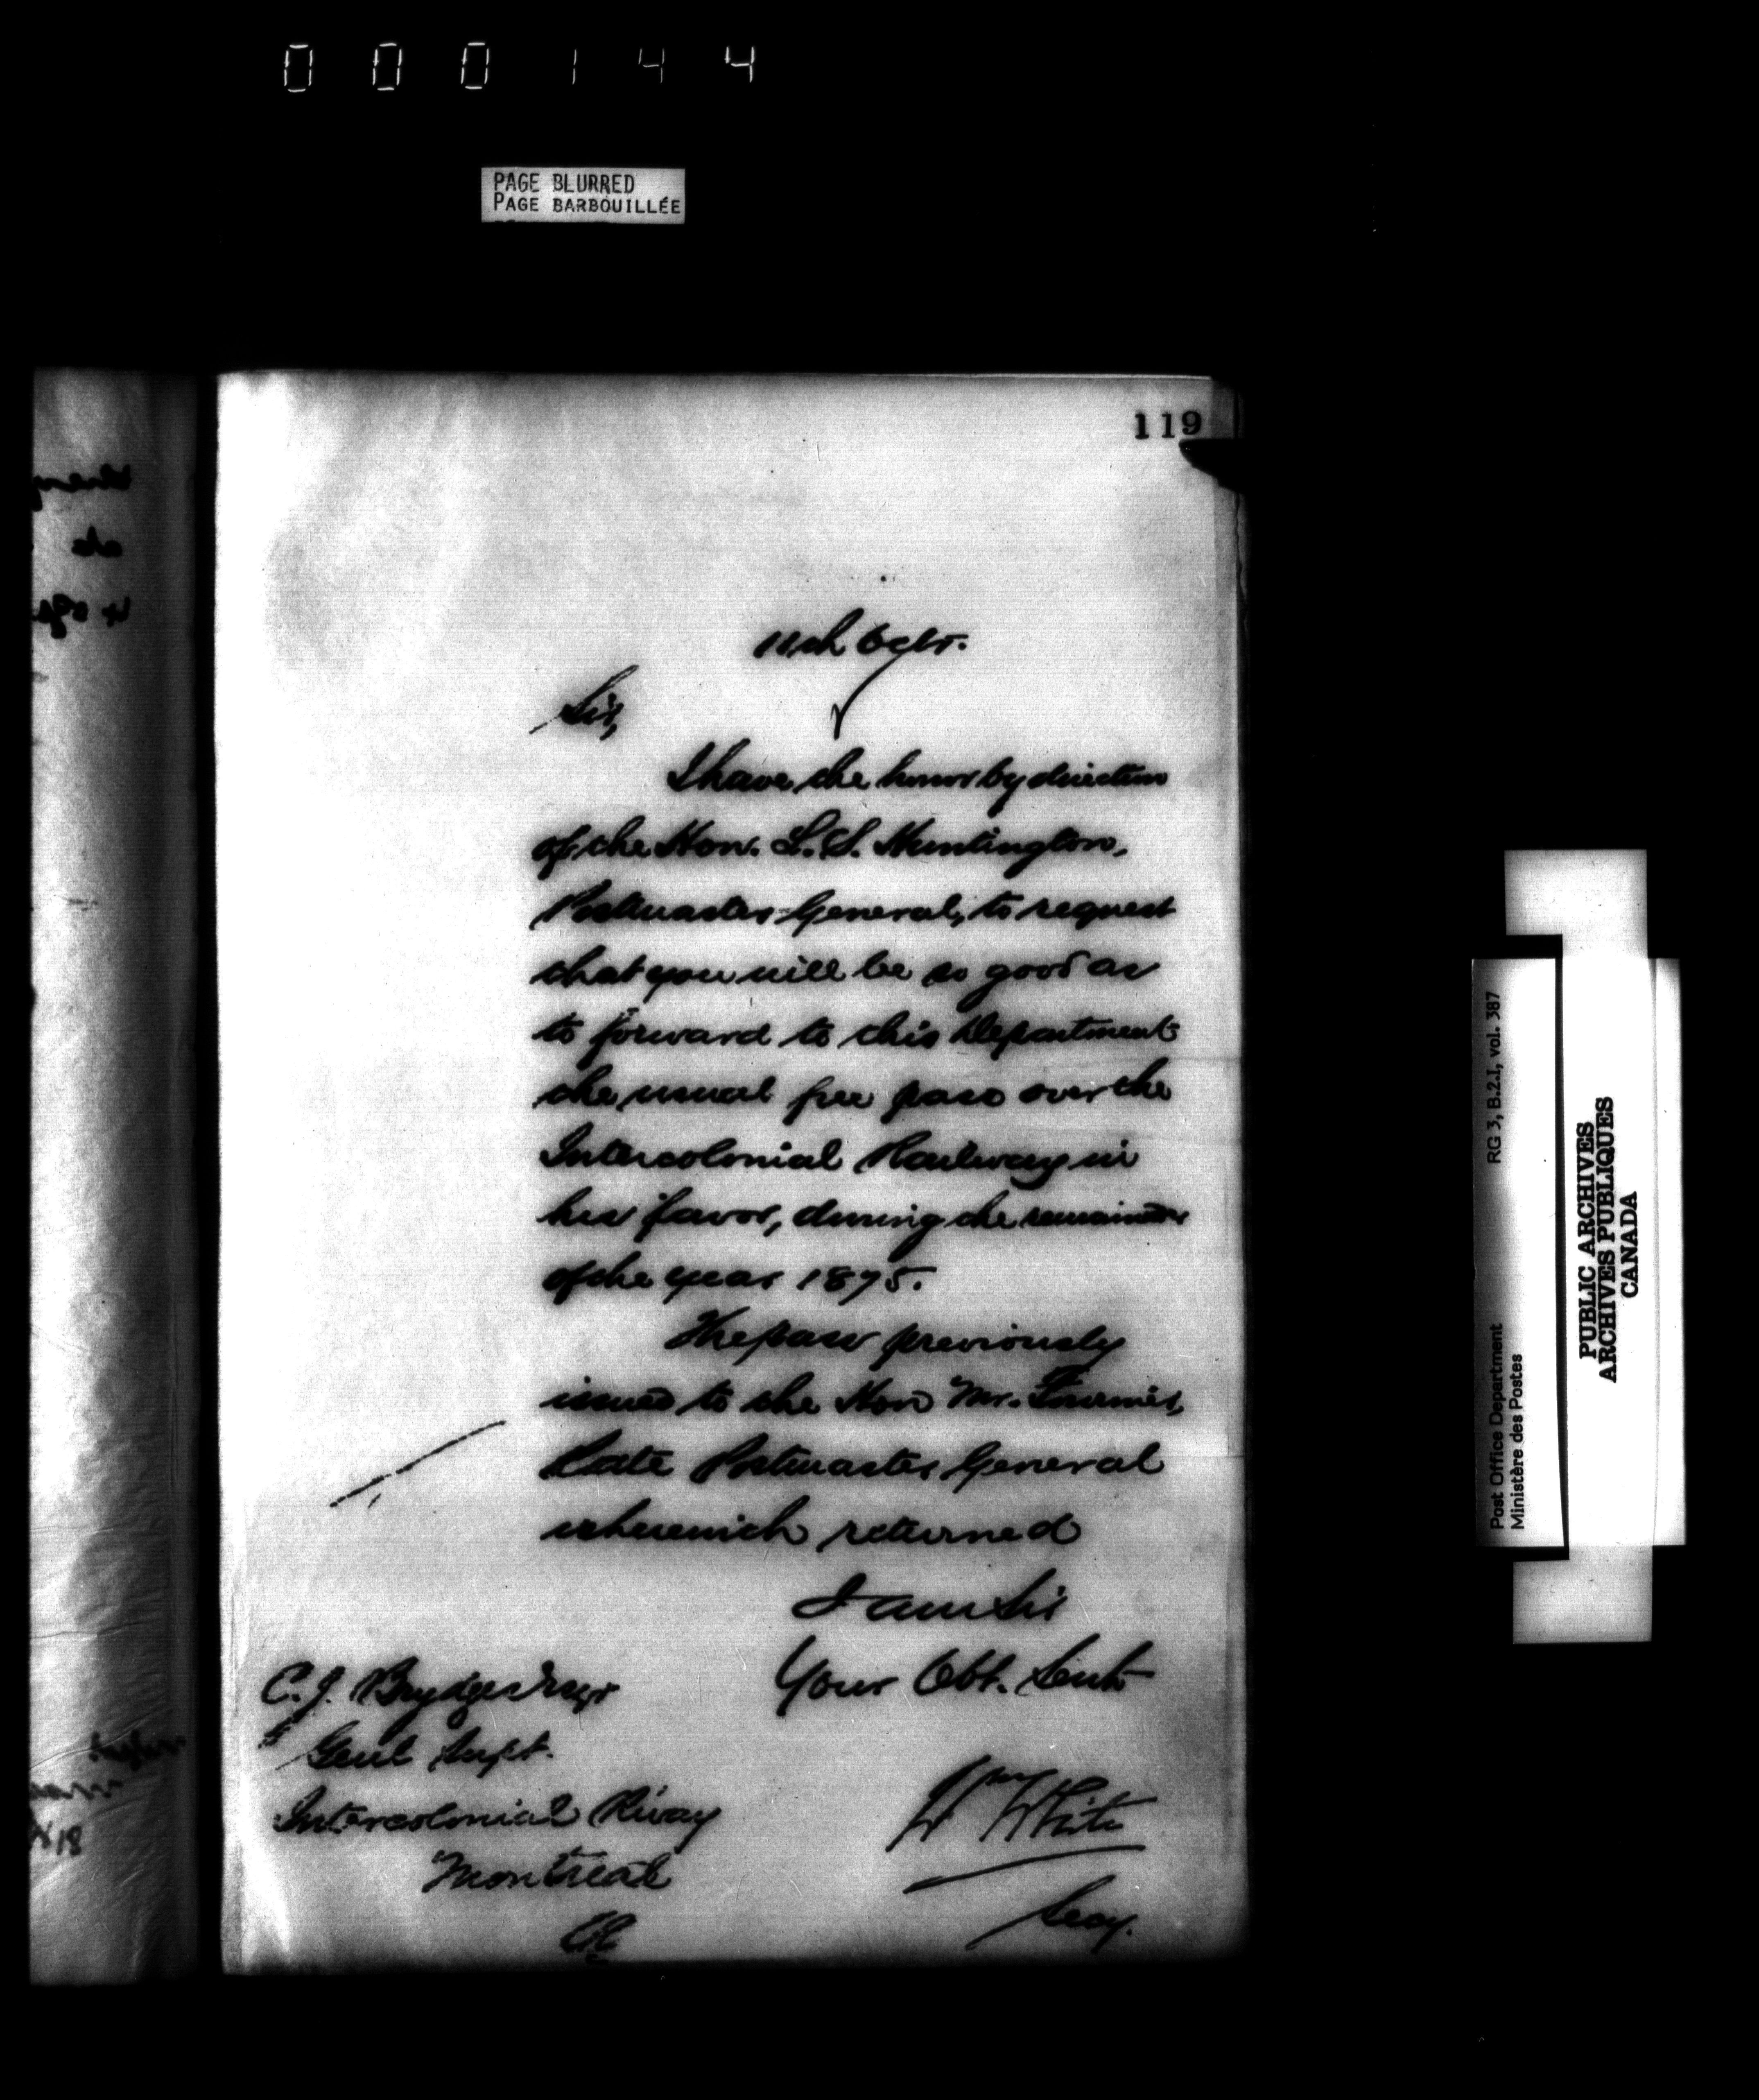 000144
PAGE BLURRED
PAGE BARBOUILLÉE
119
11th Octr.
Sir,
I have the honor by direction
of the Hon. L. S. Huntington,
Postmaster General, to request
that you will be so good as
to forward to this Department
the usual free pass over the
Intercolonial Railway in
his favor, during the remainder
of the year 1875.
The pass previously
issued to the Hon Mr. Fournier,
late Postmaster General
is herewith returned
I am Sir
Your Obt. Servt
Wm White
Secy.
C. J. Brydges Esqr
Genl Supt.
Intercolonial Rlway
Montreal
RG 3, B.2.I, vol. 387
Post Office Department
Ministère des Postes
PUBLIC ARCHIVES
ARCHIVES PUBLIQUES
CANADA